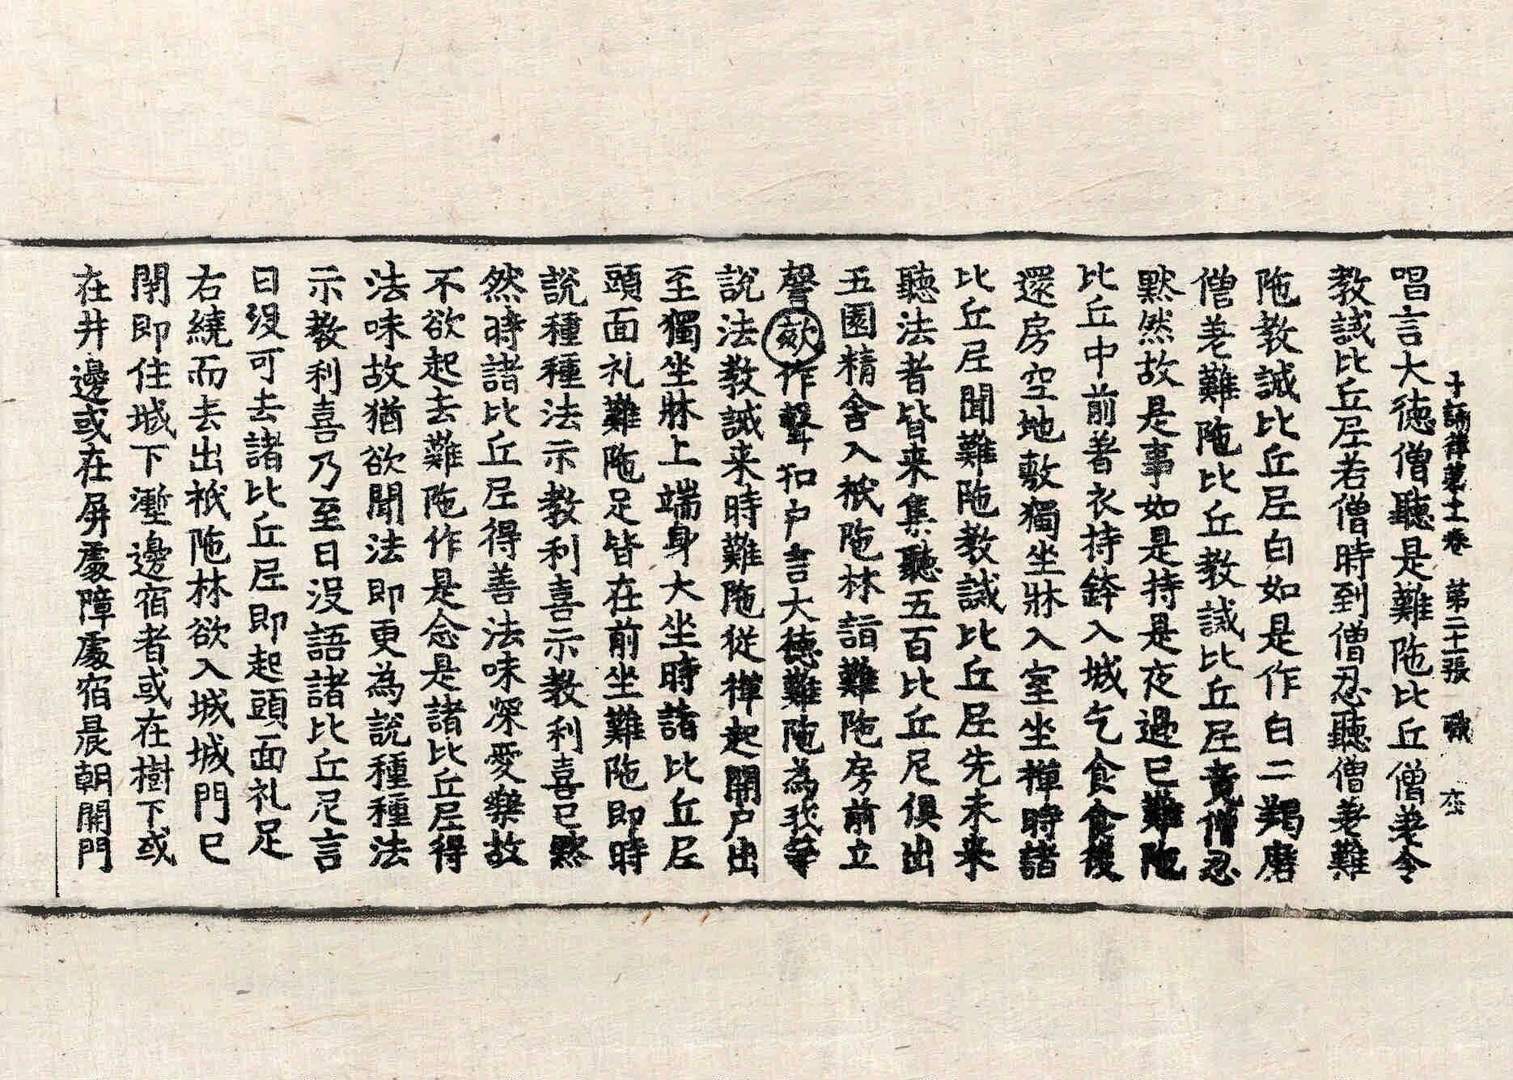 唱言大德僧聽是難陁比丘僧差令
十誦律第十一卷　第二十張　職
教誡比丘尼若僧時到僧忍聽僧差難
陁教誡比丘尼白如是作白二羯磨
僧差難陁比丘教誡比丘尼竟僧忍
黙然故是事如是持是夜過已難陁
比丘中前著衣持鉢入城乞食食後
還房空地敷獨坐牀入室坐禪時諸
比丘尼聞難陁教誡比丘尼先未来
聽法者皆来集聽五百比丘尼俱出
王園精舍入祇陁林詣難陁房前立
謦欬作聲扣户言大德難陁為我等
說法教誡来時難陁從禪起開户出
至獨坐牀上端身大坐時諸比丘尼
頭面礼難陁足皆在前坐難陁即時
說種種法示教利喜示教利喜已黙
然時諸比丘尼得善法味深愛樂故
不欲起去難陁作是念是諸比丘尼得
法味故猶欲聞法即更為說種種法
示教利喜乃至日没語諸比丘尼言
日没可去諸比丘尼即起頭面礼足
右繞而去出祇陁林欲入城城門已
閇即住城下壍邊宿者或在樹下或
在井邊或在屏處障處宿晨朝開門